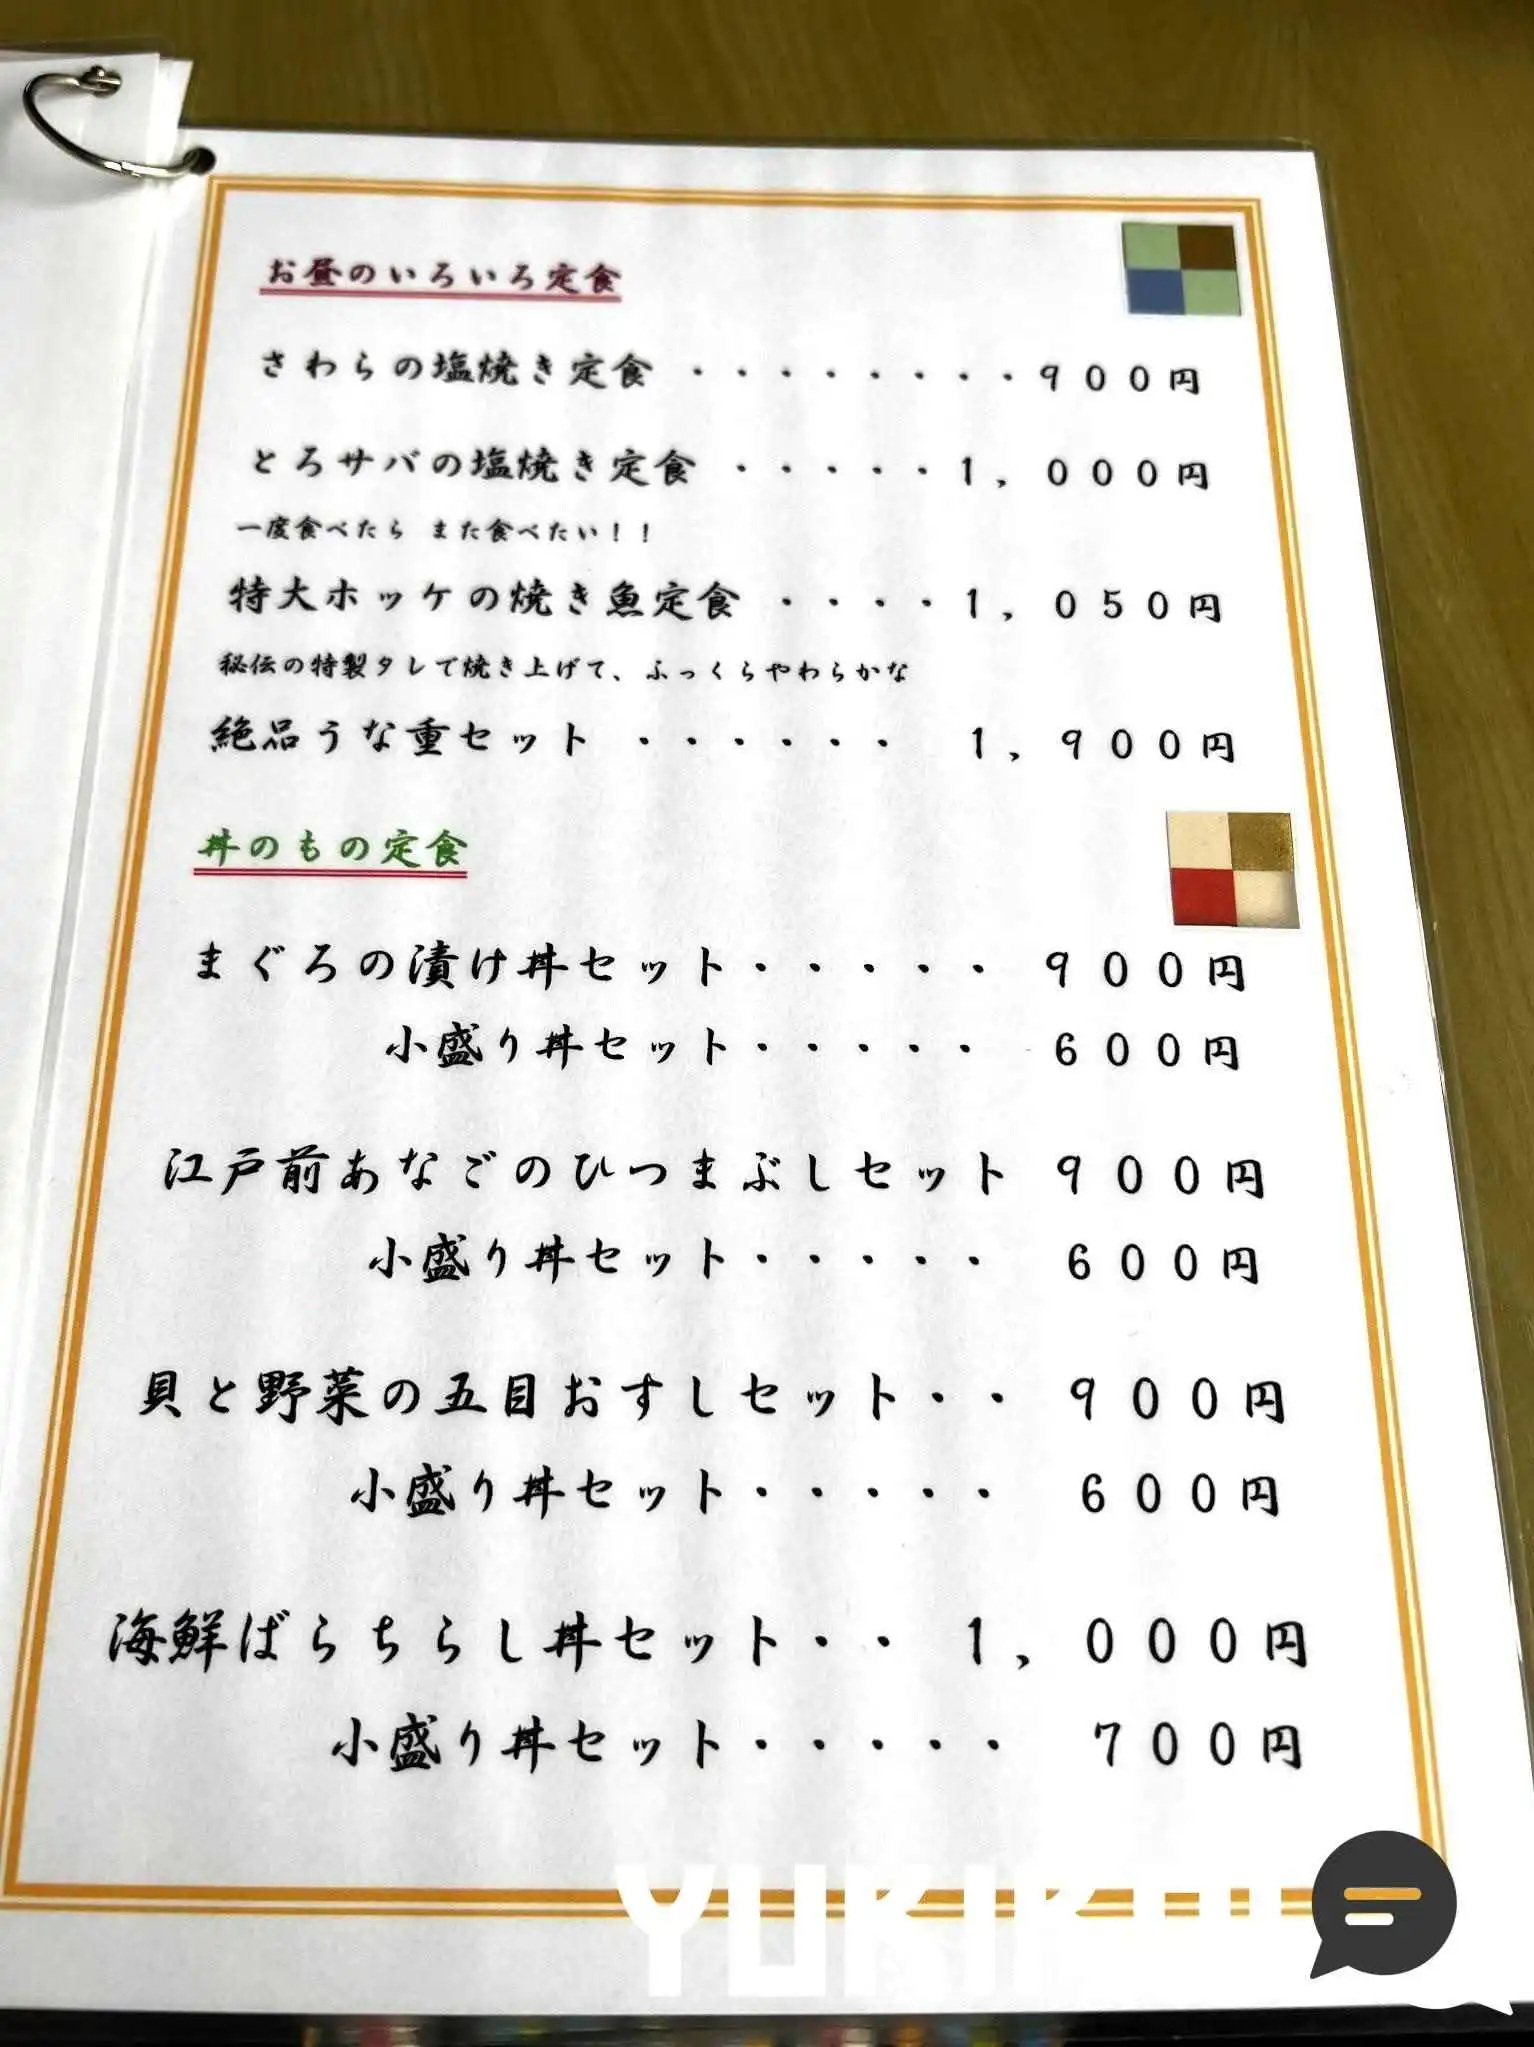 お昼のいろいろ定食
さわらの塩焼き定食 ・・・・・・・・９００円
とろサバの塩焼き定食 ・・・・・１，０００円
一度食べたら また食べたい！！
特大ホッケの焼き魚定食 ・・・・１，０５０円
秘伝の特製タレで焼き上げて、ふっくらやわらかな
絶品うな重セット ・・・・・・ １，９００円
丼のもの定食
まぐろの漬け丼セット・・・・・ ９００円
小盛り丼セット・・・・・ ６００円
江戸前あなごのひつまぶしセット ９００円
小盛り丼セット・・・・・ ６００円
貝と野菜の五目おすしセット・・ ９００円
小盛り丼セット・・・・・ ６００円
海鮮ばらちらし丼セット・・ １，０００円
小盛り丼セット・・・・・ ７００円